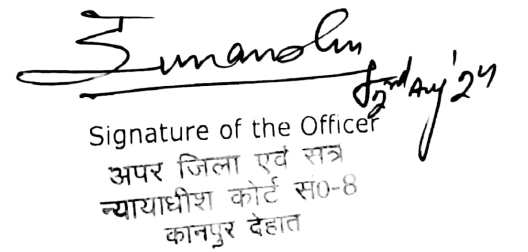 2nd Aug' 24
Signature of the Officer
अपर जिला एवं सत्र
न्यायाधीश कोर्ट सं0-8
कानपुर देहात